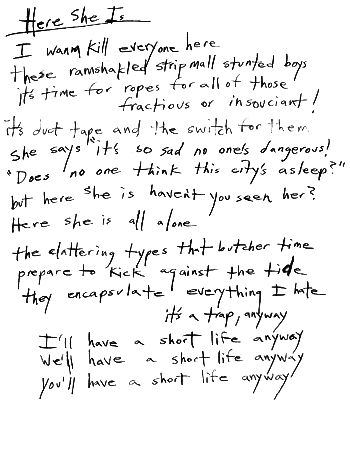 Here She Is
I wanm kill everyone here
these ramshakled strip mall stunted boys
it's time for ropes for all of those
fractious or insouciant!
it's duct tape and the switch for them
She says "it's so sad no one's dangerous!
"Does no one think this city's asleep?"
but here she is havent you seen her?
Here she is all alone
the clattering types that butcher time
prepare to kick against the tide
they encapsulate everything I hate
it's a trap, anyway
I'll have a short life anyway
We'll have a short life anyway
You'll have a short life anyway